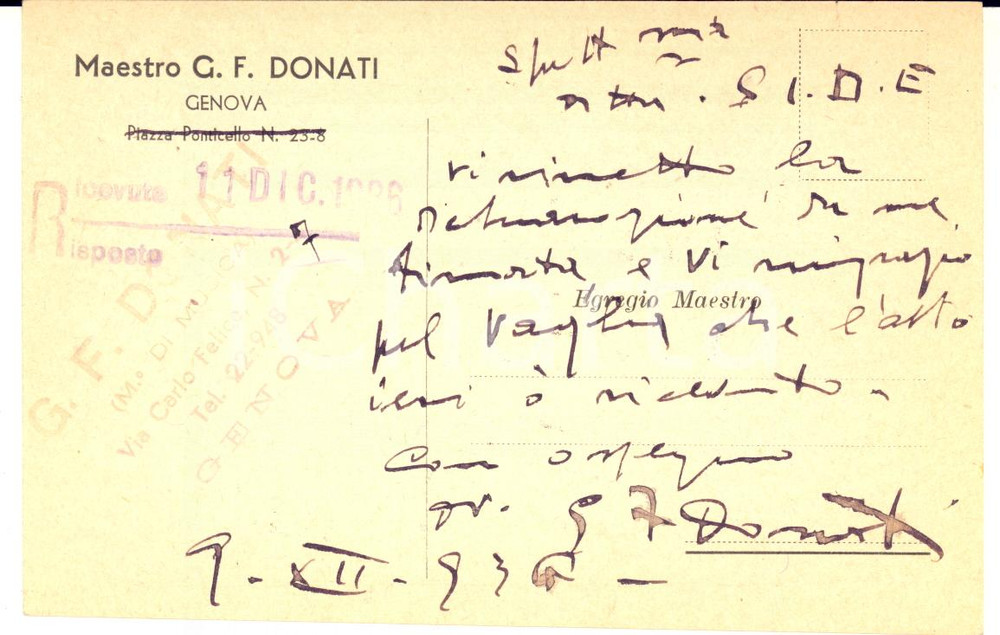 Maestro G. F. DONATI
GENOVA
Piazza Ponticello N. 23-8
Ricevuta 11 DIC. 1936
Risposto
G. F. DONATI
(M.o DI MUSICA)
Via Carlo Felice N. 2-7
Tel. 22-948
GENOVA
Spett
S.I.D.E
vi rimetto la
dichiarazione da me
firmata e vi ringrazio
Egregio Maestro
pel vaglia che l'altro
ieri ò ricevuto -
Con ossequio
G F Donati
9 - XII - 936 -